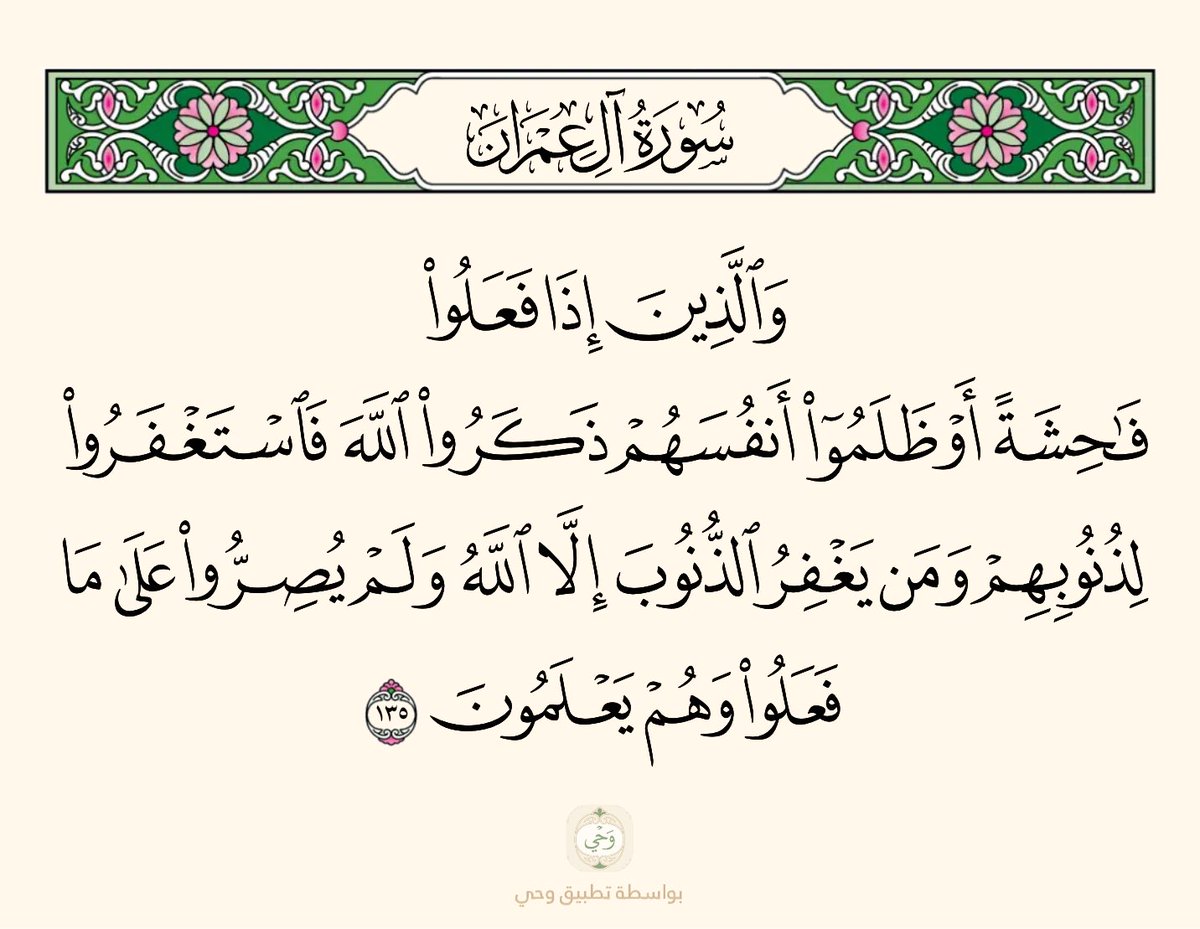 سُورَةُ آلِ عِمْرَانَ
وَٱلَّذِينَ إِذَا فَعَلُوا۟
فَـٰحِشَةً أَوْ ظَلَمُوٓا۟ أَنفُسَهُمْ ذَكَرُوا۟ ٱللَّهَ فَٱسْتَغْفَرُوا۟
لِذُنُوبِهِمْ وَمَن يَغْفِرُ ٱلذُّنُوبَ إِلَّا ٱللَّهُ وَلَمْ يُصِرُّوا۟ عَلَىٰ مَا
فَعَلُوا۟ وَهُمْ يَعْلَمُونَ ١٣٥
وَحْي
بواسطة تطبيق وحي